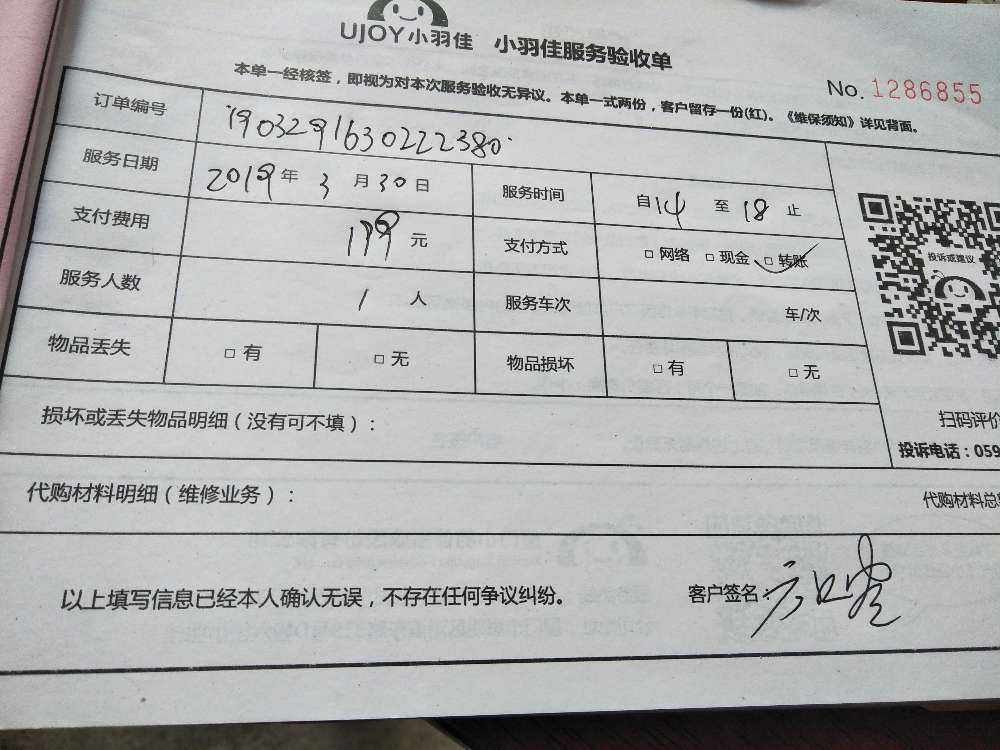 UJOY小羽佳 小羽佳服务验收单
No. 1286855
本单一经核签，即视为对本次服务验收无异议。本单一式两份，客户留存一份(红)。《维保须知》详见背面。
订单编号 1903291630222380
服务日期 2019年 3月30日 服务时间 自14 至18 止
支付费用 199元 支付方式 □网络 □现金 □转账
服务人数 1人 服务车次 车/次
物品丢失 □有 □无 物品损坏 □有 □无
投诉或建议
扫码评价
投诉电话：059
损坏或丢失物品明细（没有可不填）：
代购材料明细（维修业务）： 代购材料总
以上填写信息已经本人确认无误，不存在任何争议纠纷。 客户签名：